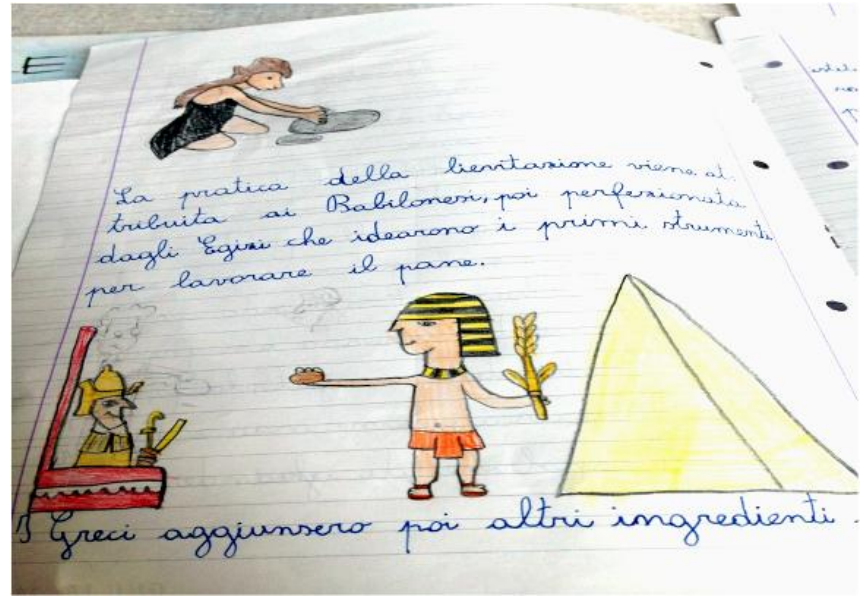 La pratica della lievitazione viene at.
tribuita ai Babilonesi, poi perfezionata
dagli Egizi che idearono i primi strumenti
per lavorare il pane.
I Greci aggiunsero poi altri ingredienti.